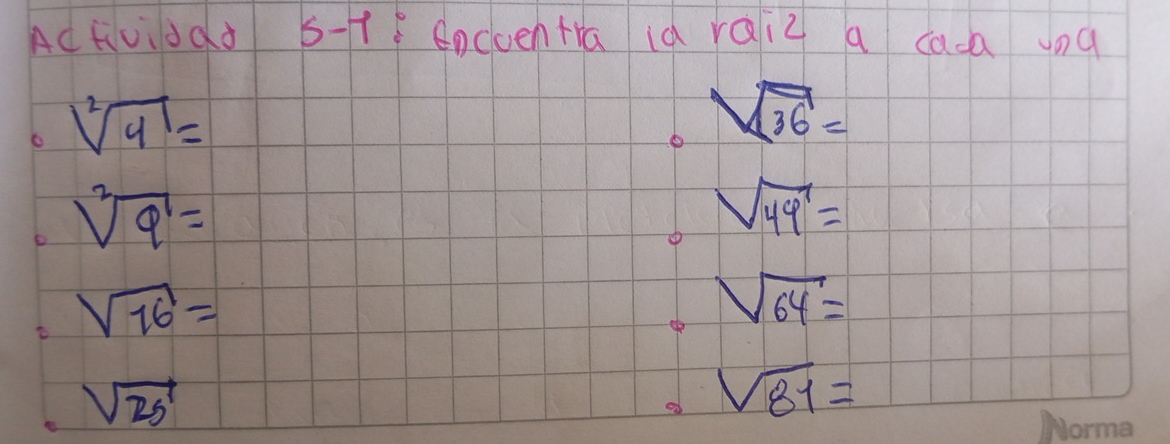 Actividad 5-1: Encuentra la raiz a cada una
²√4 =
√36 =
²√9 =
√49 =
√16 =
√64 =
√25
√81 =
Norma